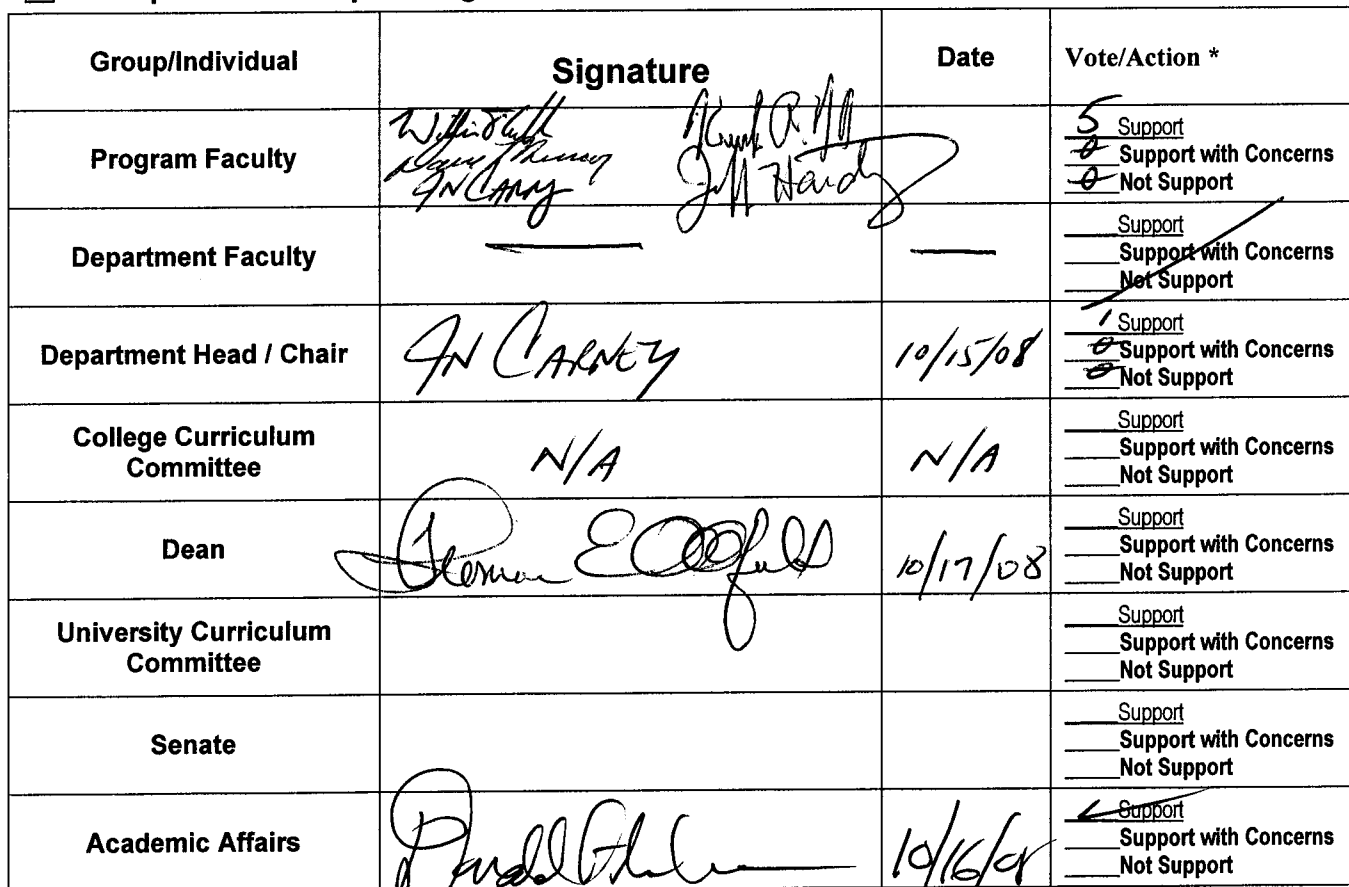 Group/Individual Signature Date Vote/Action *
Program Faculty
JN CARNEY
Jeff Hardy
5 Support
0 Support with Concerns
0 Not Support
Department Faculty — —
Support
Support with Concerns
Not Support
Department Head / Chair JN CARNEY 10/15/08
1 Support
0 Support with Concerns
0 Not Support
College Curriculum
Committee
N/A N/A
Support
Support with Concerns
Not Support
Dean 10/17/08
Support
Support with Concerns
Not Support
University Curriculum
Committee
Support
Support with Concerns
Not Support
Senate
Support
Support with Concerns
Not Support
Academic Affairs 10/16/08
Support
Support with Concerns
Not Support